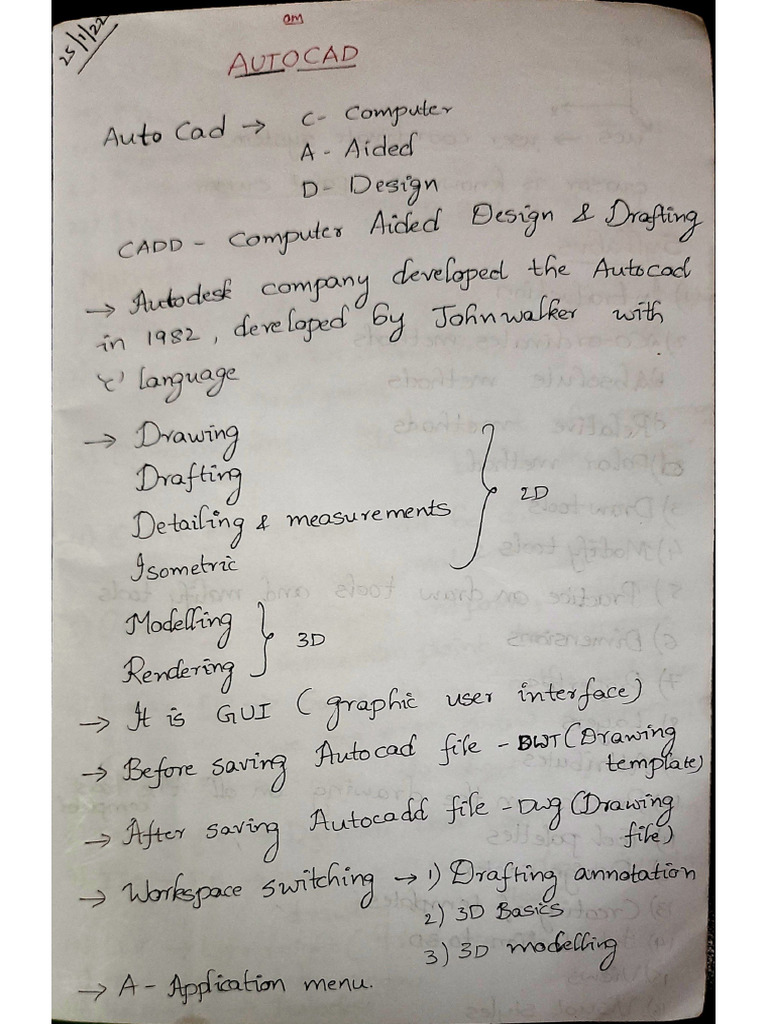 25/1/22
om
AUTOCAD
Auto Cad → C- Computer
A - Aided
D- Design
CADD - Computer Aided Design & Drafting
→ Autodesk company developed the Autocad
in 1982, developed by John walker with
'c' language
→ Drawing
Drafting
Detailing & measurements
Isometric
2D
Modelling
Rendering
3D
→ It is GUI (graphic user interface)
→ Before saving Autocad file - DWT (Drawing
template)
→ After saving Autocadd file - Dwg (Drawing
file)
→ Workspace switching → 1) Drafting annotation
2) 3D Basics
3) 3D modelling
→ A - Application menu.